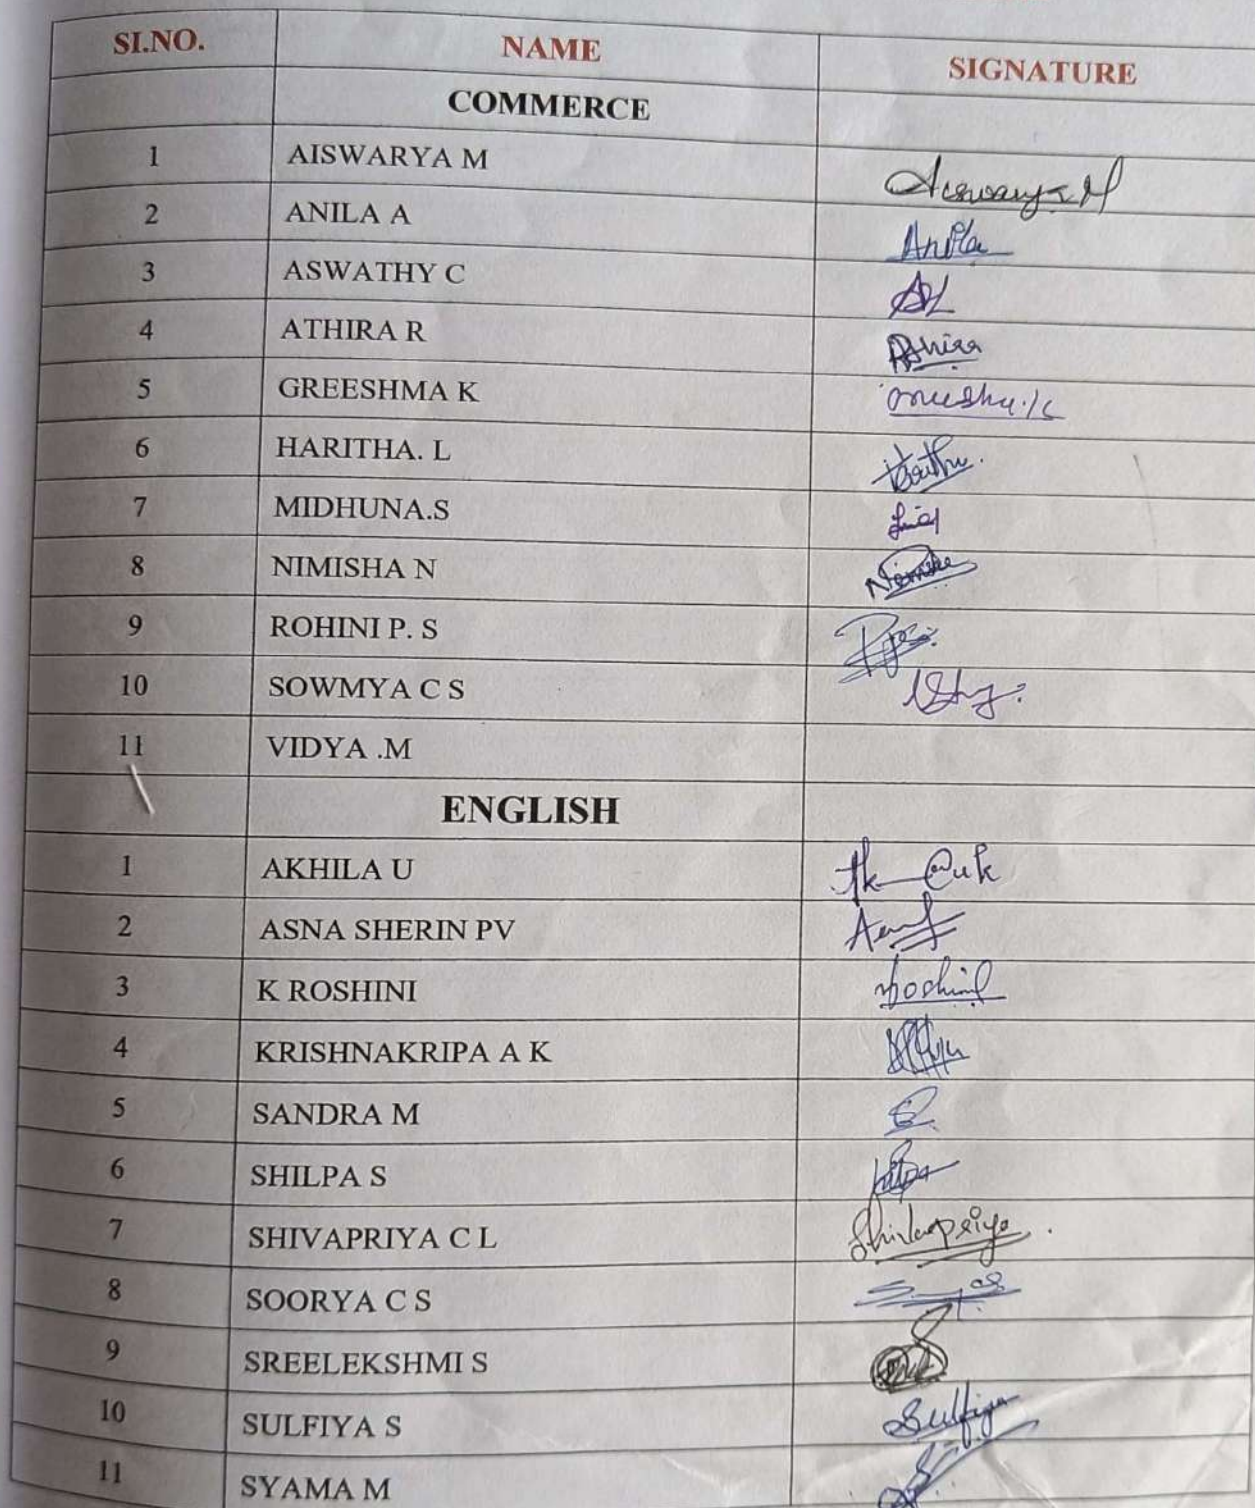 SI.NO. NAME SIGNATURE
COMMERCE
1 AISWARYA M Aiswarya M
2 ANILA A Anila
3 ASWATHY C
4 ATHIRA R Athira
5 GREESHMA K
6 HARITHA. L
7 MIDHUNA.S
8 NIMISHA N Nimisha
9 ROHINI P. S
10 SOWMYA C S
11 VIDYA .M
ENGLISH
1 AKHILA U
2 ASNA SHERIN PV
3 K ROSHINI Roshini
4 KRISHNAKRIPA A K
5 SANDRA M
6 SHILPA S
7 SHIVAPRIYA C L Shivapriya
8 SOORYA C S
9 SREELEKSHMI S
10 SULFIYA S Sulfiya
11 SYAMA M